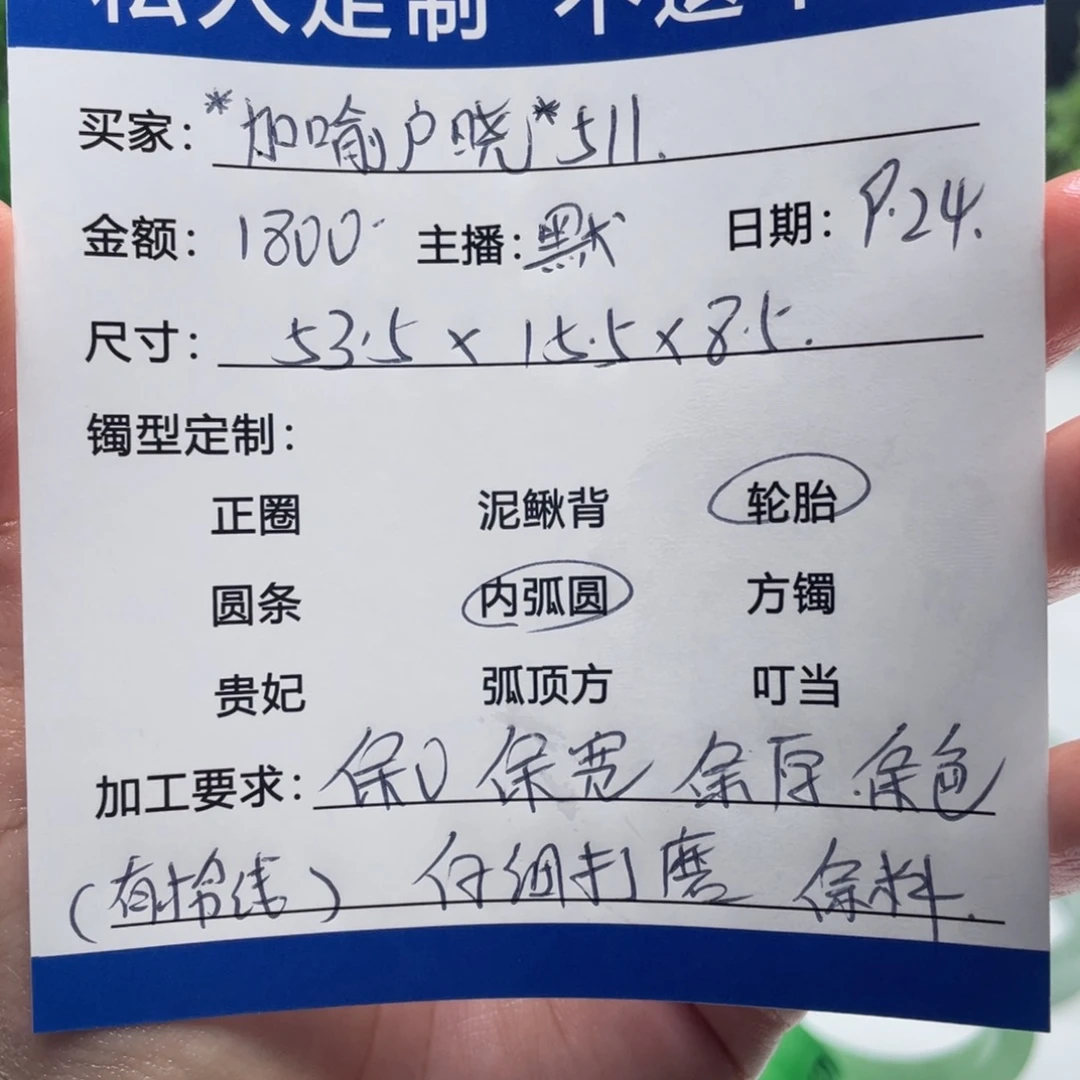 私人定制 不退
买家: *加喻户晓*511.
金额: 1800 主播: 默 日期: 9.24.
尺寸: 53.5 × 15.5 × 8.5.
镯型定制:
正圈 泥鳅背 轮胎
圆条 内弧圆 方镯
贵妃 弧顶方 叮当
加工要求: 保口 保宽 保厚 保色
(有 线) 仔细打磨 保料.